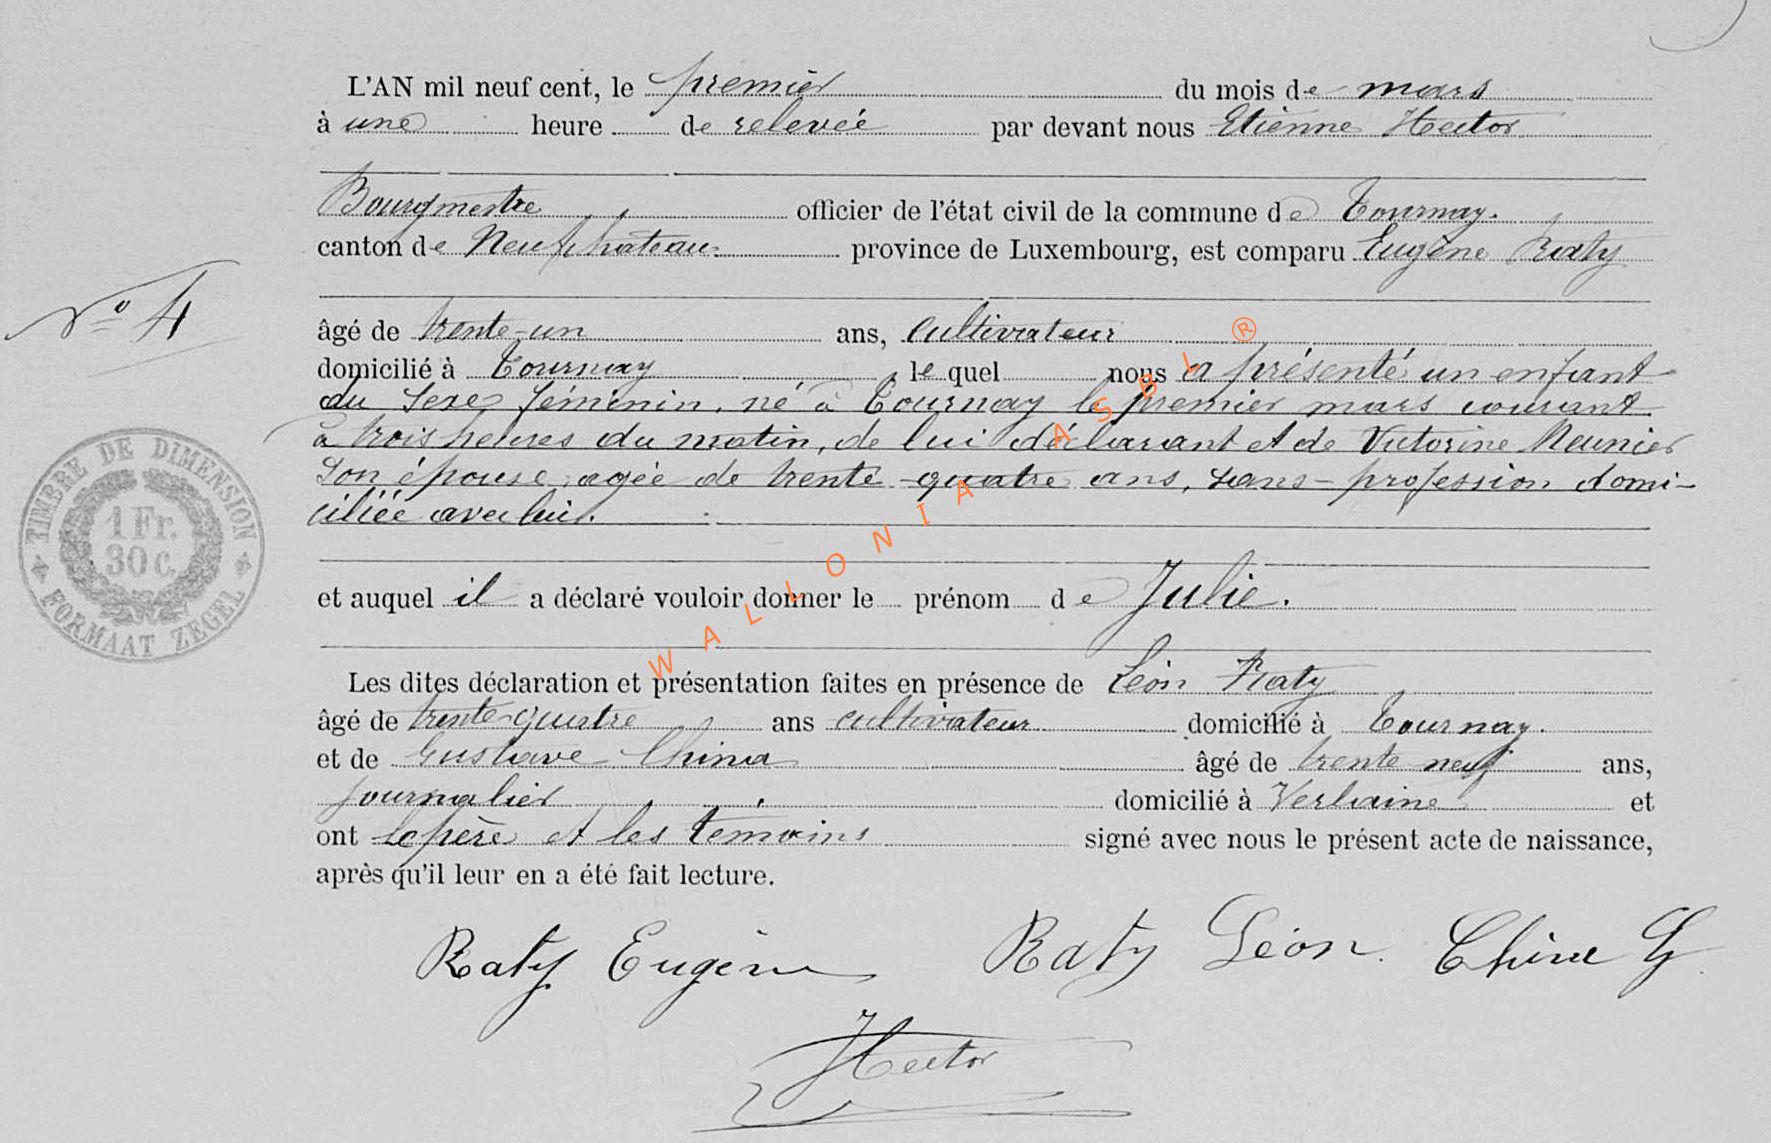 L'AN mil neuf cent, le premier du mois de mars
à une heure de relevée par devant nous Etienne Hector
Bourgmestre officier de l'état civil de la commune de Tournay.
canton de Neufchateau province de Luxembourg, est comparu Eugène Raty
N° 4
âgé de trente-un ans, cultivateur
domicilié à Tournay le quel nous a présenté un enfant
du sexe féminin, né à Tournay le premier mars courant
à trois heures du matin, de lui déclarant et de Victorine Meunier
son épouse, agée de trente-quatre ans, sans-profession domi-
ciliée avec lui.
TIMBRE DE DIMENSION
1 Fr.
30 c.
FORMAAT ZEGEL
et auquel il a déclaré vouloir donner le prénom de Julie.
Les dites déclaration et présentation faites en présence de Léon Raty
âgé de trente-quatre ans cultivateur domicilié à Tournay.
et de Gustave China âgé de trente neuf ans,
journalier domicilié à Verlaine et
ont le père et les témoins signé avec nous le présent acte de naissance,
après qu'il leur en a été fait lecture.
Raty Eugène Raty Léon. Chine G
Hector
WALLONIA ASBL ®